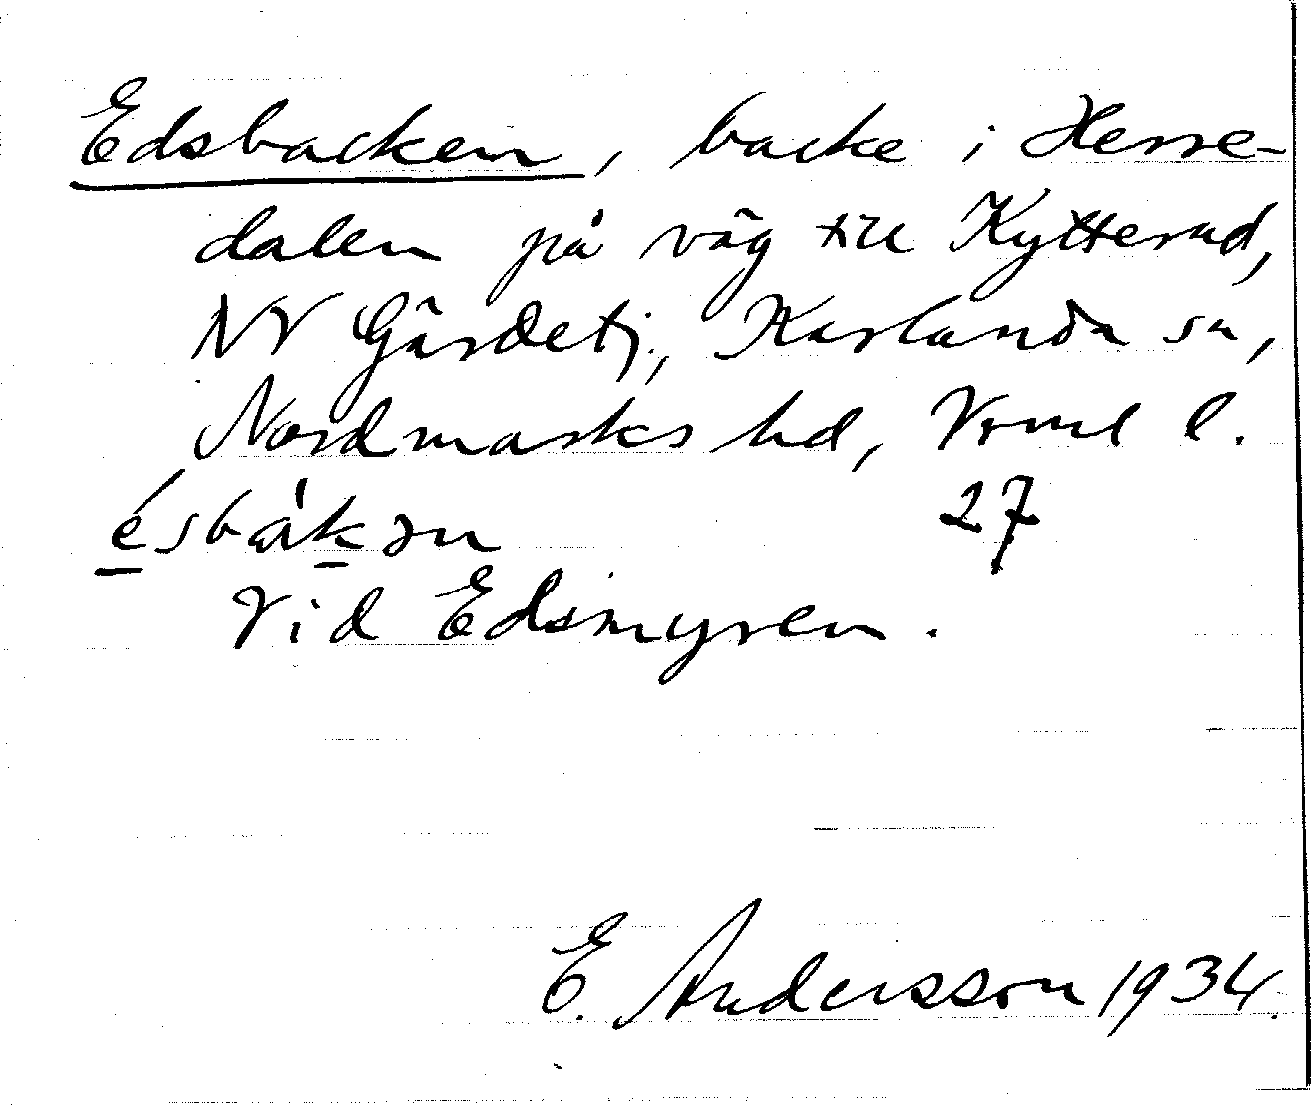 Edsbacken, backe i Herre-
dalen på väg till Kytterud,
NV Gärdetj., Karlanda sn,
Nordmarks hd, Vrml l.
ésbák̲ən 27
Vid Edsmyren.
E. Andersson 1934.